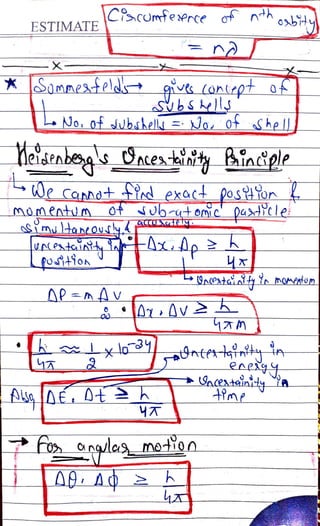 ESTIMATE
Circumference of nth orbit
= nλ
* Sommerfeld → gives concept of
subshells
↳ No. of subshells = No. of shell
Heisenberg's Uncertainity Principle
↳ We cannot find exact position &
momentum of sub-atomic particle
simultaneously & accurately.
uncertainity in position
Δx . Δp ≥ h/4π
↳ Uncertainity in momentum
Δp = m Δv
Δx . Δv ≥ h/4πm
• h/4π ≈ 1/2 × 10⁻³⁴
Uncertainity in energy
Uncertainity in time
Also ΔE . Δt ≥ h/4π
→ For angular motion
Δθ . Δϕ ≥ h/4π